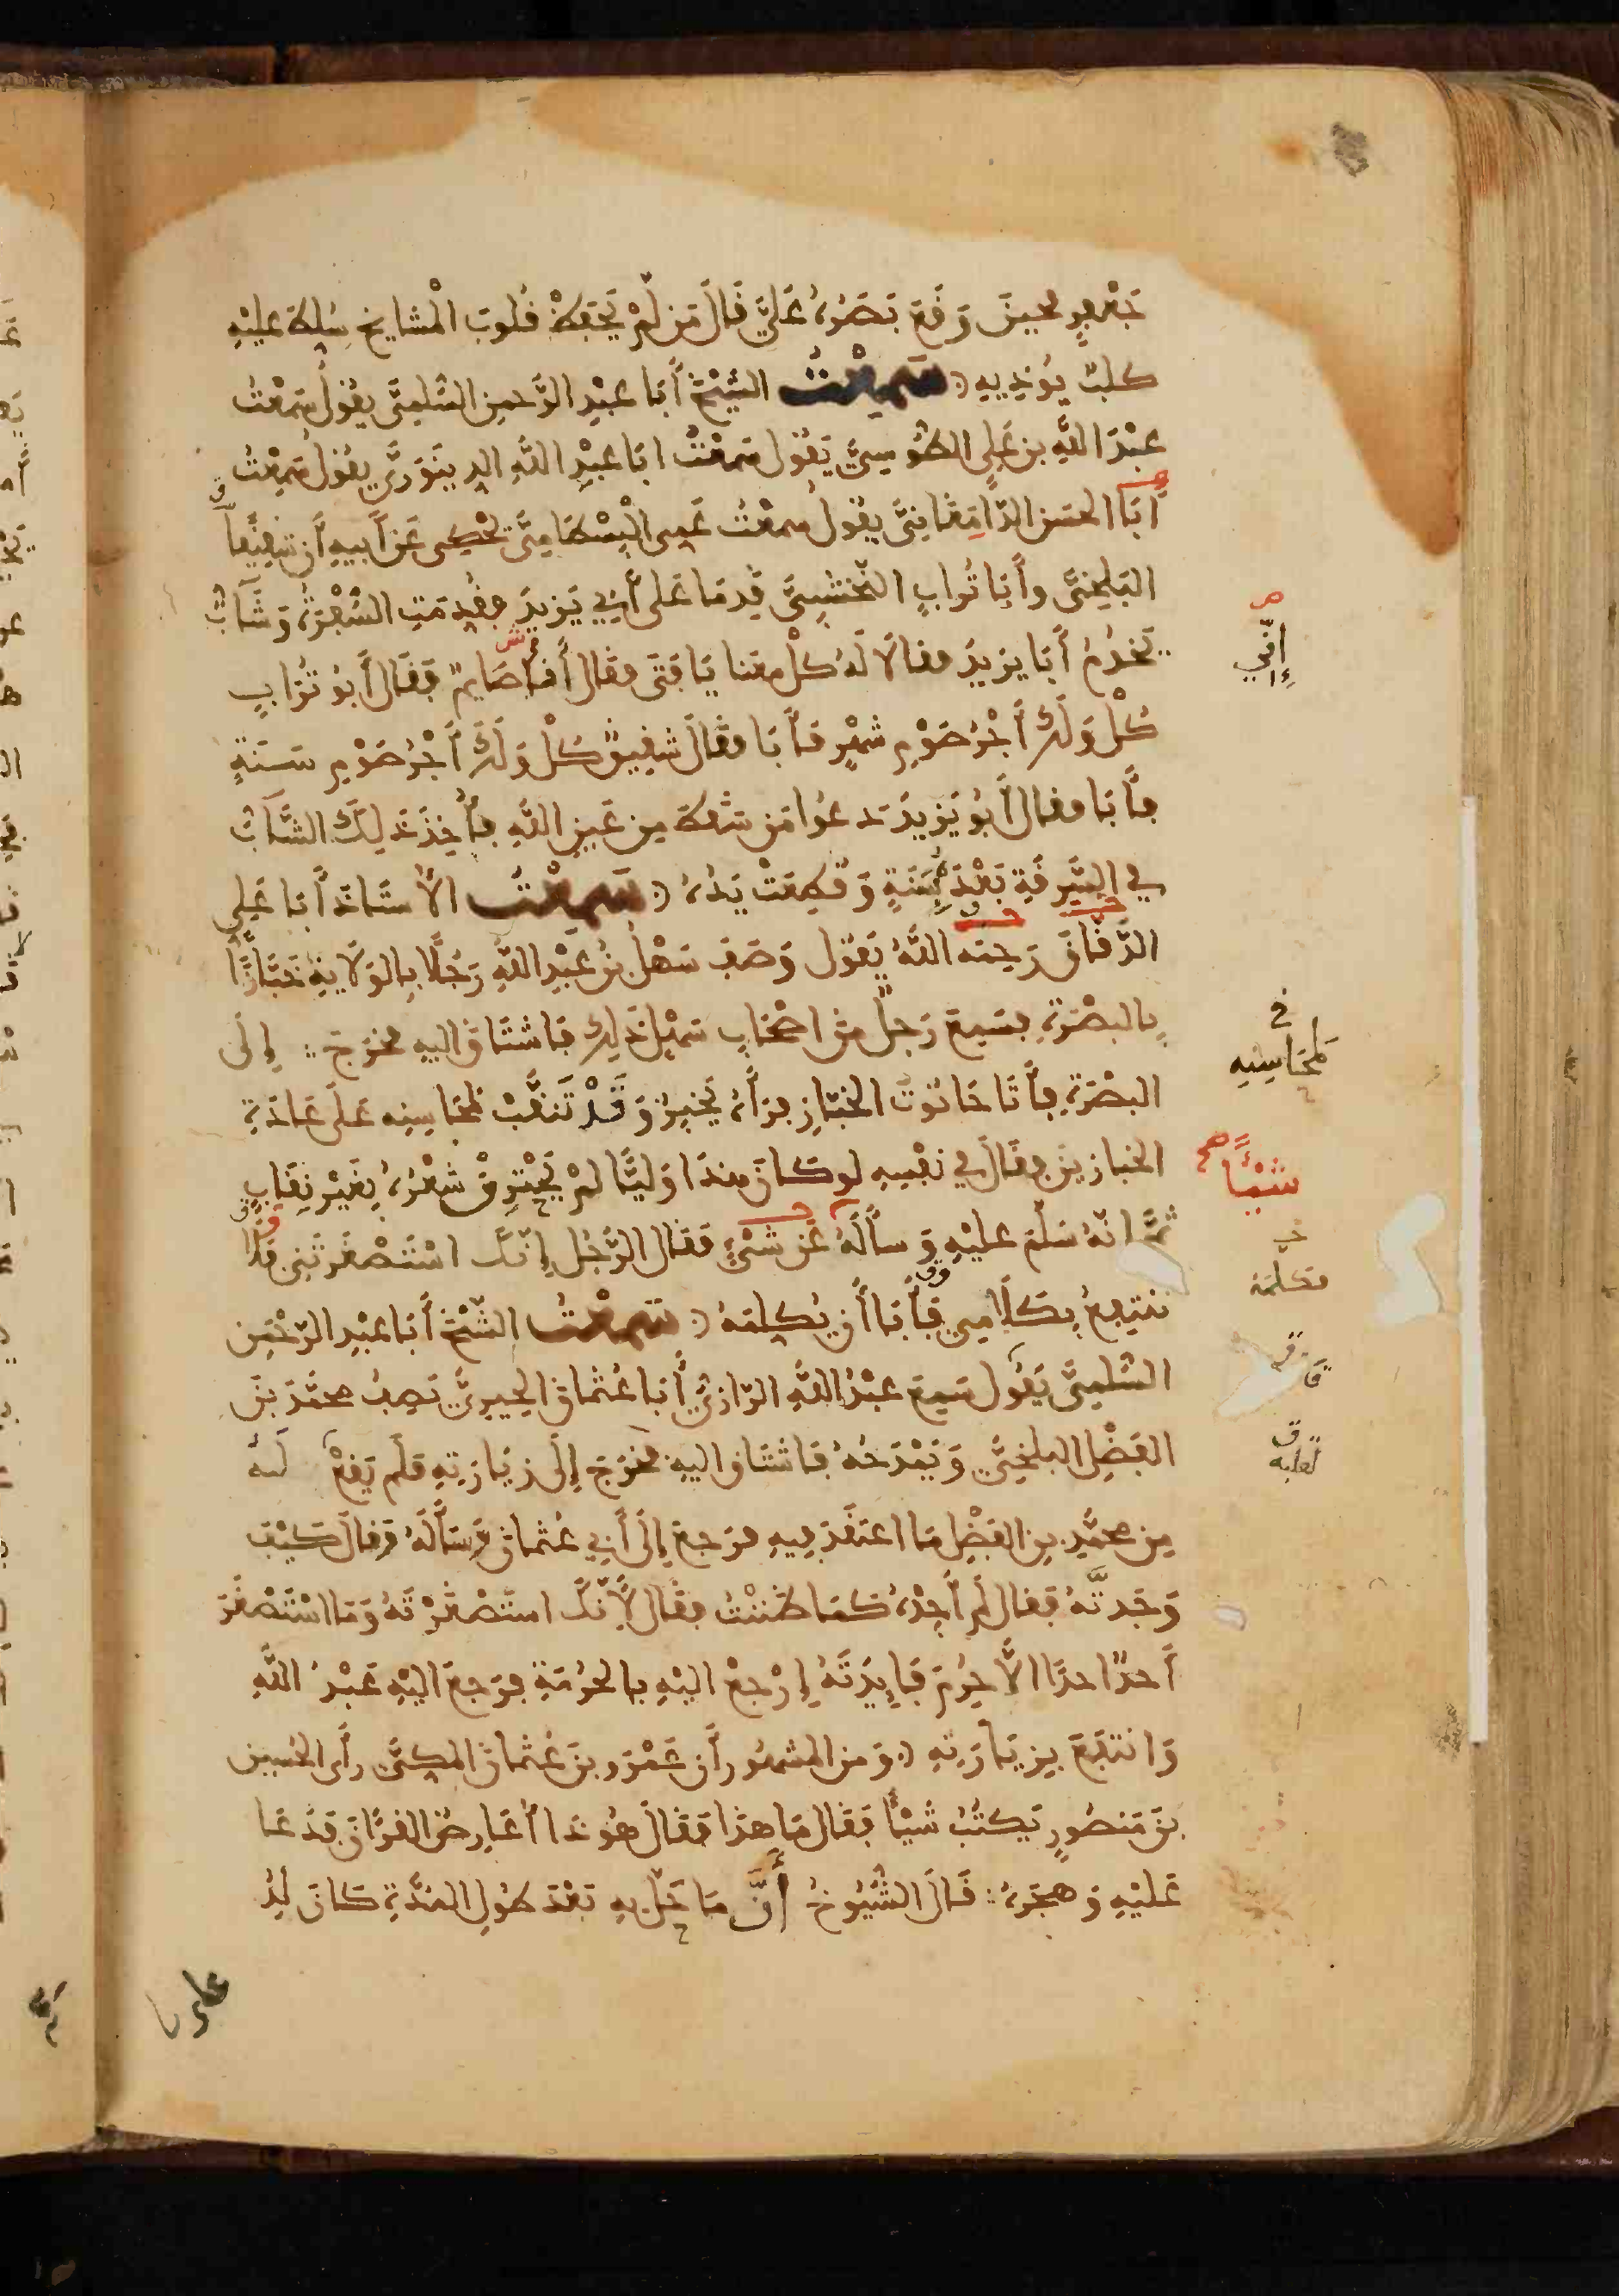 جَعْفَرٍ فحين وَقَعَ بَصَرُهُ عَلَيَّ قَالَ مَن لَمْ تَحْفَظْهُ قُلُوبُ الْمَشايخِ سُلِّطَ عليْهِ
كلبٌ يُوذِيهِ سَمِعْتُ الشَّيْخَ أَبَا عَبْدِ الرَّحمنِ السُّلَمِيَّ يقُولُ سَمِعْتُ
عَبْدَ اللَّهِ بن عَلِي الطُّوسِيَّ يَقُول سَمِعْتُ ابَا عَبْدِ اللَّهِ الدِينَوَرِيَّ يقُولُ سَمِعْتُ
أَبَا الحسَن الدَّامَغَانِيَّ يقُولُ سمعْتُ عَمِي الْبِسْطَامِيَّ يَحْكِى عَنْ أَبِيهِ أَن شَقِيقاً
البَلْخِيَّ وأَبَا تُرابٍ النَّخْشَبِيَّ قَدِمَا عَلى أَبِي يَزِيدَ فقُدِمَتِ السُّفْرَةُ وَشَابٌّ
يَخْدُمُ أَبَا يزيدَ فقالاَ لَهُ كلْ معَنا يَا فَتَى فقَال أَنَا صَايِمٌ فَقَال أَبُو تُرَابٍ
كُلْ وَلَكَ أَجْرُ صَوْمِ شَهْرٍ فأَبَا فقَالَ شقِيقٌ كُلْ وَلَكَ أَجْرُ صَوْمِ سَنَةٍ
فأَبَا فقال أَبُو يَزِيدَ دَعُوا مَن سَقَطَ مِن عَيْنِ اللَّهِ فأُخِذَ ذَلِكَ الشَّابُّ
في السَّرِقَةِ بَعْدَ سَنَةٍ وَقُطِعَتْ يَدُهُ سَمِعْتُ الأُستَاذَ أَبَا عَلِي
الدَّقَّاقَ رَحِمَه اللَّهُ يَقُول وَصَفَ سَهْلُ بْنُ عَبْدِ اللَّهِ رَجُلًا بِالوَلَايةِ خَبَّازًا
بِالبصْرَةِ فسَمِعَ رَجلٌ مِن اصْحَابِ سَهْلٍ ذَلِكَ فَاشتَاقَ اليهِ فخَرَجَ إِلَى
البصْرَةِ فأَتَا حَانُوتَ الخبَّازِ فرَأَهُ يَخْبِزُ وَقَدْ تَنَقَّبَ لمحَاسِنِه عَلَى عَادَةِ
الخبازينَ فقَالَ في نَفْسِهِ لو كَانَ هذَا وَلِيًّا لمْ يَحْتَرِقْ شَعْرُهُ بِغَيْرِ نِقَابٍ
ثمَّ انَّهُ سَلَّمَ عليْهِ وَسأَلَهُ عَن شَيْءٍ فَقَال الرَّجُل إِنَّكَ اسْتَصْغَرْتَنِي فَلَا
تَنتَفِعُ بِكَلَامِي فَأَبَا أَن يُكلِّمَهُ سَمِعْتُ الشَّيْخَ أَبَا عبْدِ الرَّحْمَن
السُّلمِيَّ يَقُول سَمِعَ عَبْدُ اللَّهِ الرَّازِيُّ أَبَا عُثْمَانَ الحِيرِيَّ يَصِفُ محَمَّدَ بنَ
الفَضْلِ البلخِيَّ وَيَمْدَحُهُ فَاشتَاقَ اليهِ فخَرَجَ إِلَى زِيَارَتِهِ فَلَم يَقَعْ لَهُ
مِن محمَّدِ بنِ الفَضْلِ مَا اعتَقَدَ فِيهِ فرَجعَ إِلَى أَبِي عُثْمانَ فَسَأَلَهُ فقالَ كَيْفَ
وَجَدتَّهُ فَقال لَم أَجِدْهُ كَمَا ظَنَنْتُ فقَال لأَنَّكَ استَصْغَرْتَهُ وَمَا اسْتَصْغَرَ
أَحدٌ احدًا الاَّ حُرِمَ فَايِدَتَهُ إِرْجعْ اليْهِ بالحُرْمَةِ فرَجعَ اليْهِ عَبْدُ اللَّهِ
وَانتَفَعَ بِزِيَارَتِهِ وَمن المشهُور أَن عَمْرَو بنَ عُثْمانَ المَكِيَّ رأَى الحُسين
بنَ مَنصُورٍ يَكتُبُ شَيْأً فَقَال مَا هذَا فَقَالَ هُوَ ذَا أُعَارِضُ القرْآنَ فَدَعَا
عَلَيْهِ وَهجَرَهُ قَالَ الشُّيُوخُ أَنَّ مَا حَلَّ بِهِ بَعْدَ طُولِ المُدَّةِ كَانَ لِدُ
إِنِّي
في
لمحَاسِنِهِ
شَيْئاً
فكلَّمَهُ